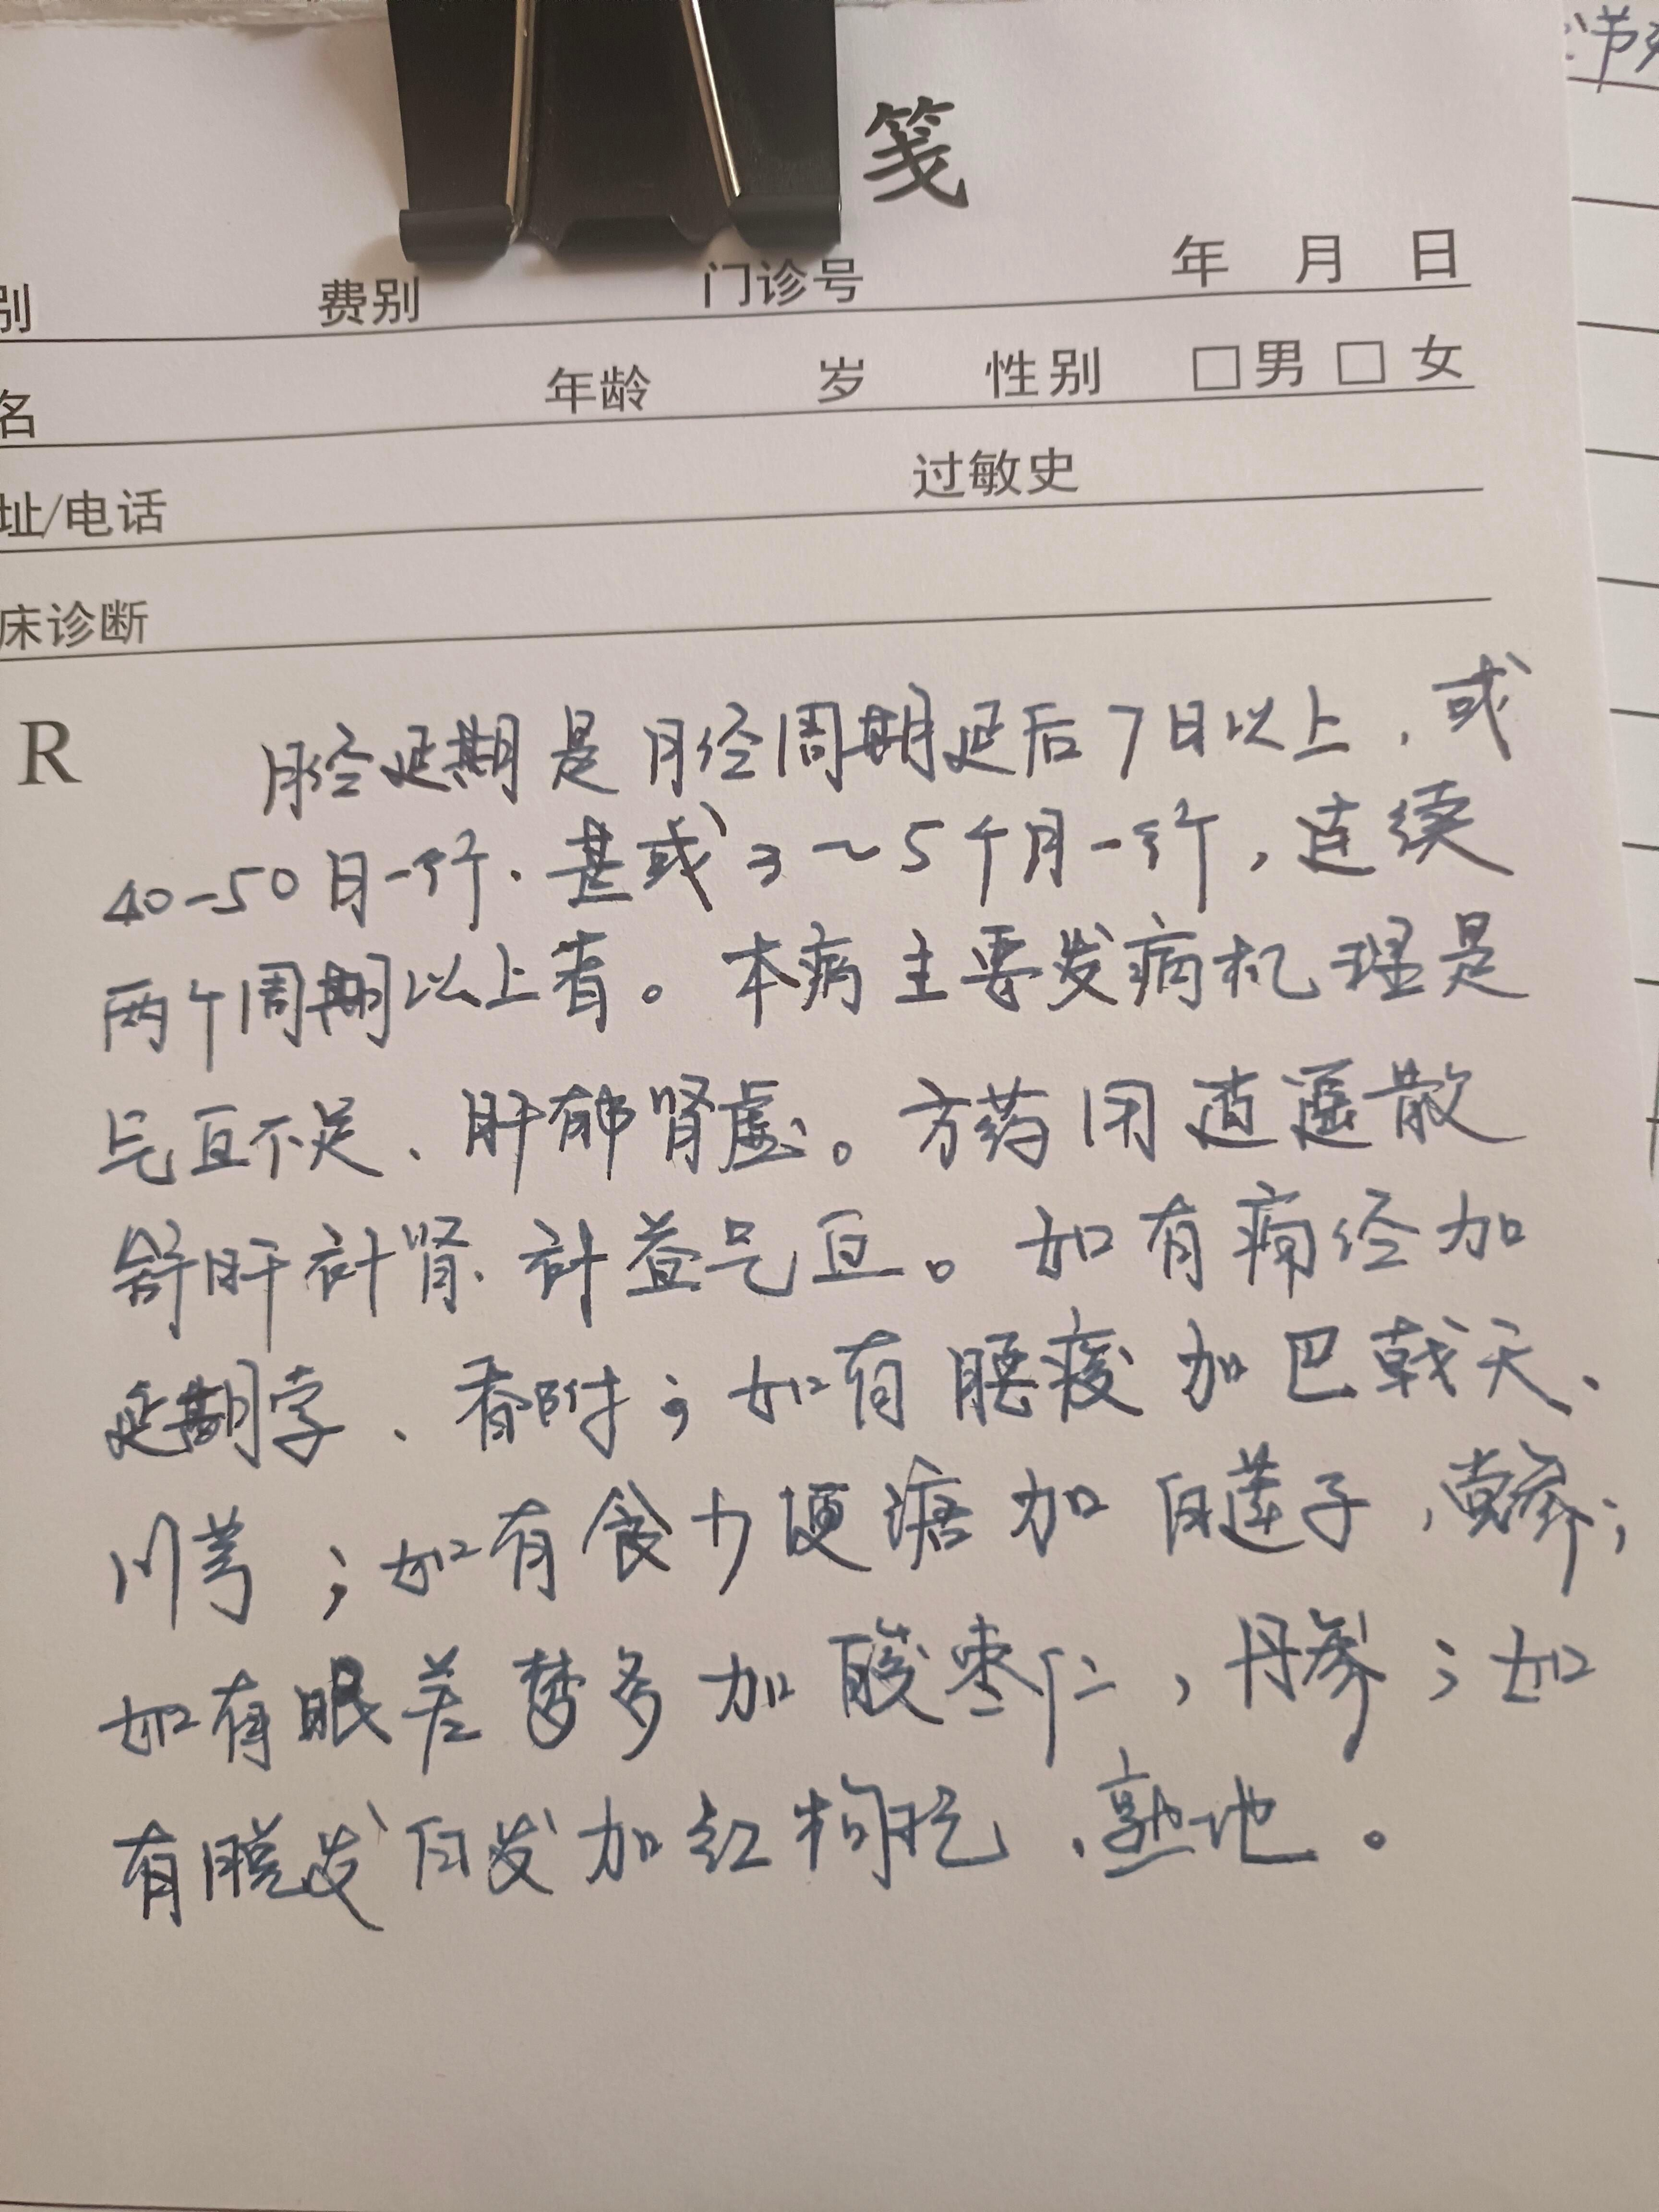 笺
别 费别 门诊号 年 月 日
名 年龄 岁 性别 □男 □女
址/电话 过敏史
床诊断
R
月经延期是月经周期延后7日以上，或
40-50日一行.甚或3~5个月一行，连续
两个周期以上者。本病主要发病机理是
气血不足、肝郁肾虚。方药用逍遥散
舒肝补肾、补益气血。如有痛经加
延期索、香附；如有腰痠加巴戟天、
川芎；如有食少便溏加白莲子，党参；
如有眠差梦多加酸枣仁，丹参；如
有脱发白发加红枸杞、熟地。